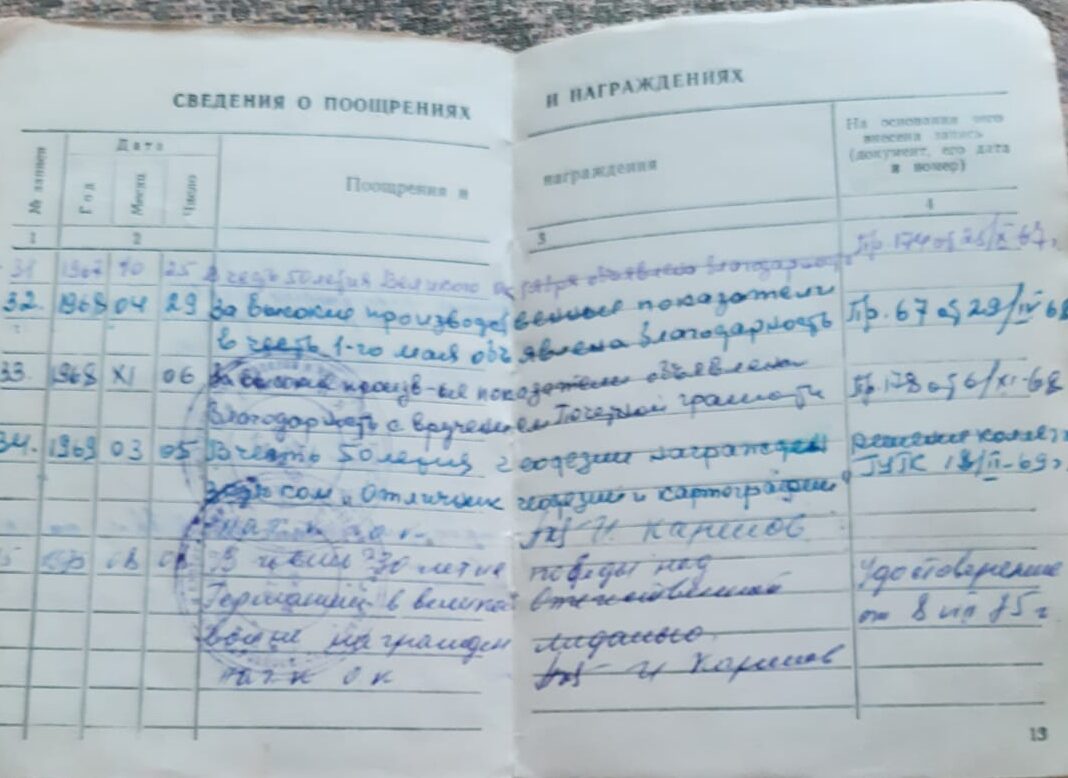 СВЕДЕНИЯ О ПООЩРЕНИЯХ И НАГРАЖДЕНИЯХ
№ записи
Дата
Год
Месяц
Число
Поощрения и награждения
На основании чего
внесена запись
(документ, его дата
и номер)
1 2 3 4
31 1967 10 25 В честь 50летия Великого октября объявлена благодарность Пр. 174 от 25/X 67г.
32. 1968 04 29 За высокие производственные показатели Пр. 67 от 29/IV 68
в честь 1-го мая объявлена благодарность
33. 1968 XI 06 За высокие произв-ые показатели объявлена Пр. 178 от 6/XI-68
благодарность с вручением Почетной грамоты
34. 1969 03 05 В честь 50летия геодезии награжден решение
значком "Отличник геодезии и картографии" ГУГК 18/II-69г.
И Каримов
08 В честь 30 летие победы над Удостоверение
Германией в великой отечественной от 8 VIII 75 г
войне награжден медалью.
И Каримов
13